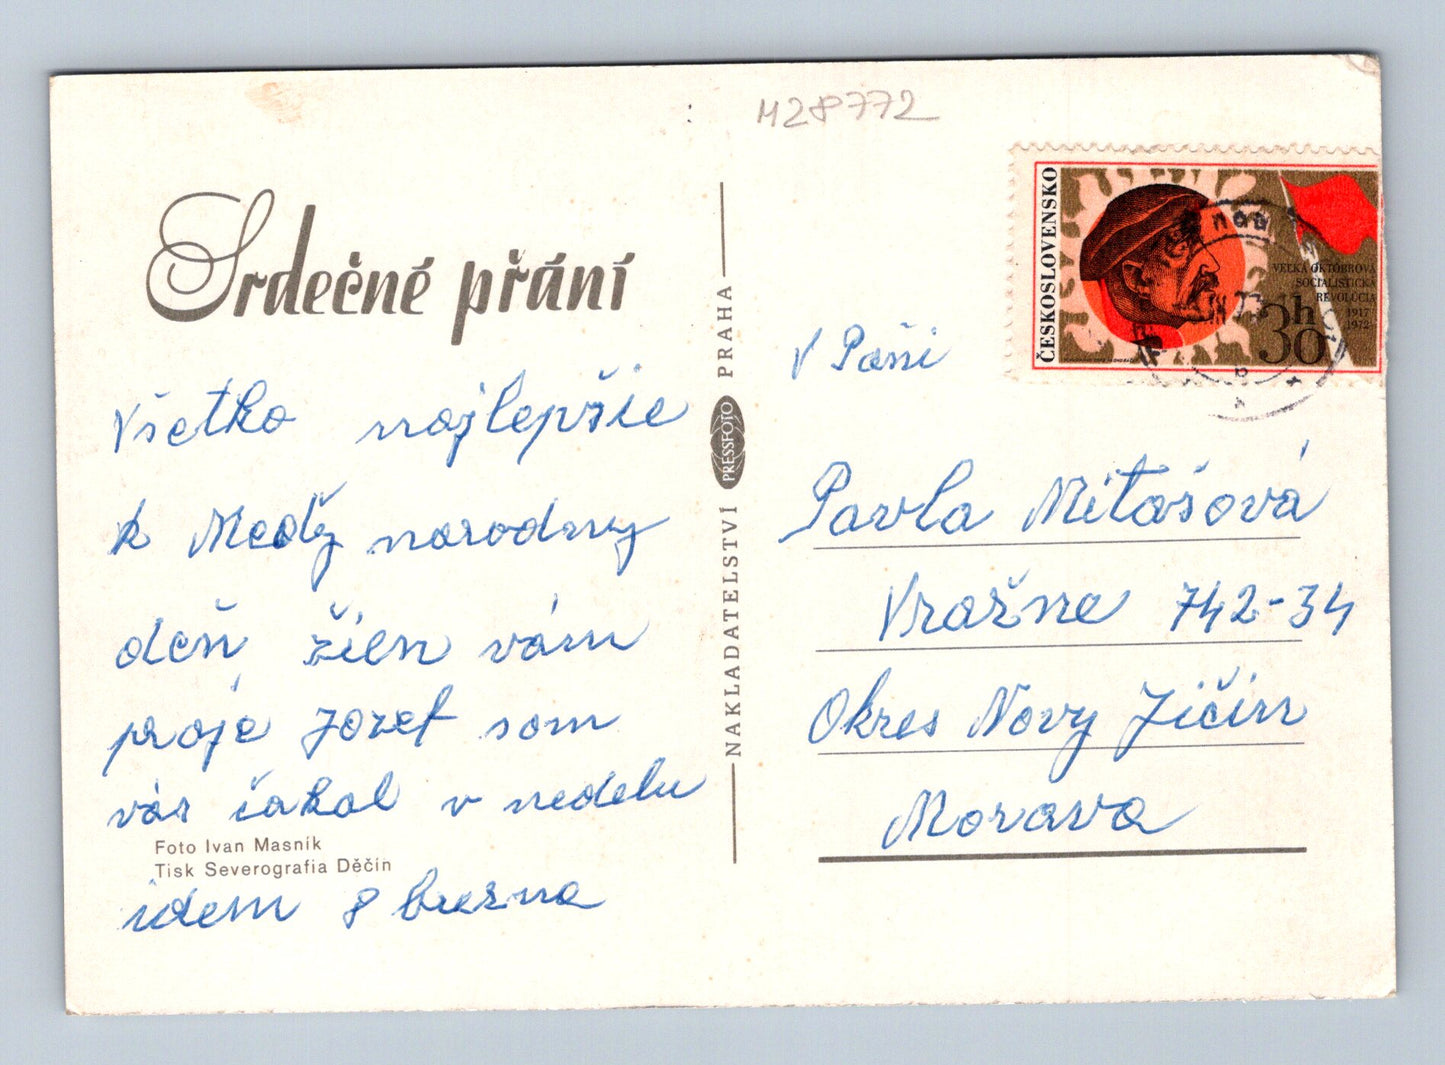 M28772
Srdečné přání
Všetko najlepšie
k Medzy narodnny
deň žien vám
praje Jozef som
vás čakal v nedelu
Foto Ivan Masník
Tisk Severografia Děčín
idem 8 brezna
NAKLADATELSTVÍ PRESSFOTO PRAHA
ČESKOSLOVENSKO
VEĽKÁ OKTÓBROVÁ
SOCIALISTICKÁ
REVOLÚCIA
1917
1972
30h
nad
73
V Paňi
Pavla Mitašová
Vražne 742-34
Okres Novy Jičin
Morava